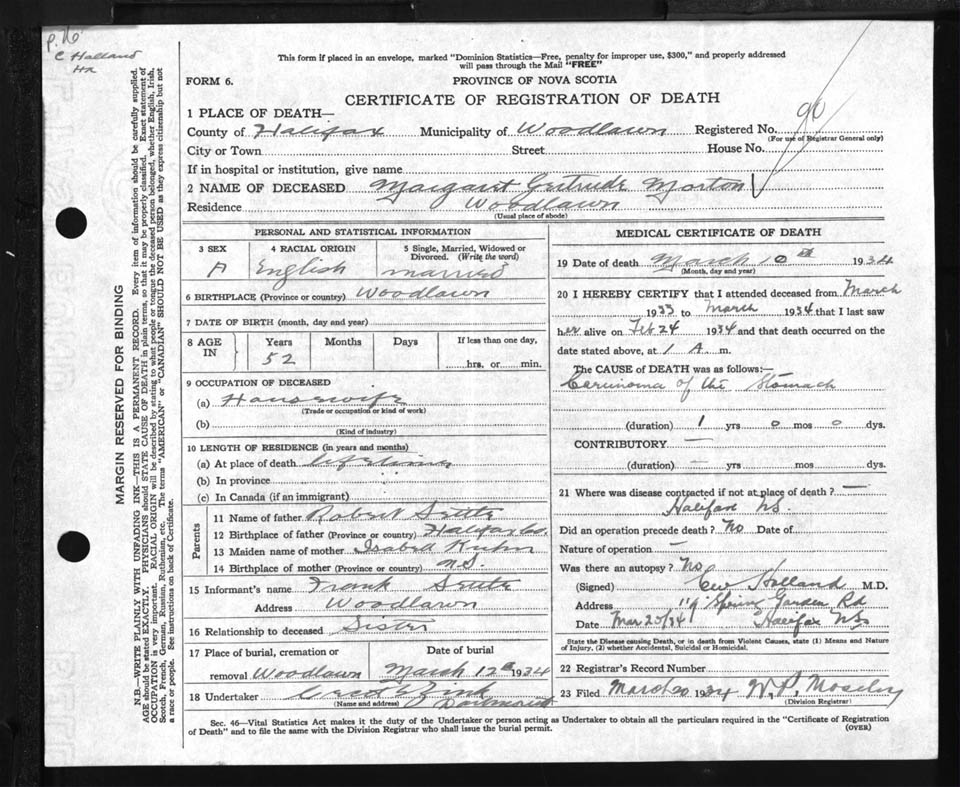 P. 76
C Holland
Hx
MARGIN RESERVED FOR BINDING
N.B.—WRITE PLAINLY WITH UNFADING INK—THIS IS A PERMANENT RECORD. Every item of information should be carefully supplied.
AGE should be stated EXACTLY. PHYSICIANS should STATE CAUSE OF DEATH in plain terms, so that it may be properly classified. Exact statement of
OCCUPATION is very important. RACIAL ORIGIN will be described by stating to what people or tongue the deceased person belonged, whether English, Irish,
Scotch, French, German, Russian, Ruthenian, etc. The terms "AMERICAN" or "CANADIAN" SHOULD NOT BE USED as they express citizenship but not
a race or people. See instructions on back of Certificate.
This form if placed in an envelope, marked "Dominion Statistics—Free, penalty for improper use, $300," and properly addressed
will pass through the Mail "FREE"
FORM 6. PROVINCE OF NOVA SCOTIA
CERTIFICATE OF REGISTRATION OF DEATH
1 PLACE OF DEATH—
County of Halifax Municipality of Woodlawn Registered No. 90
(For use of Registrar General only)
City or Town Street House No.
If in hospital or institution, give name
2 NAME OF DECEASED Margaret Gertrude Morton
Residence Woodlawn
(Usual place of abode)
PERSONAL AND STATISTICAL INFORMATION
3 SEX 4 RACIAL ORIGIN 5 Single, Married, Widowed or Divorced. (Write the word)
English married
6 BIRTHPLACE (Province or country) Woodlawn
7 DATE OF BIRTH (month, day and year)
8 AGE IN Years Months Days If less than one day,
52 hrs. or min.
9 OCCUPATION OF DECEASED
(a) Housewife
(Trade or occupation or kind of work)
(b)
(Kind of industry)
10 LENGTH OF RESIDENCE (in years and months)
(a) At place of death lifetime
(b) In province
(c) In Canada (if an immigrant)
Parents
11 Name of father Robert Settle
12 Birthplace of father (Province or country) Halifax Co.
13 Maiden name of mother Isabell Kuhn
14 Birthplace of mother (Province or country) N.S.
15 Informant's name Frank Settle
Address Woodlawn
16 Relationship to deceased Sister
17 Place of burial, cremation or Date of burial
removal Woodlawn March 12th 1934
18 Undertaker Zink
(Name and address) Dartmouth
MEDICAL CERTIFICATE OF DEATH
19 Date of death March 10th 1934
(Month, day and year)
20 I HEREBY CERTIFY that I attended deceased from March
1933 to March 1934 that I last saw
her alive on Feb 24 1934 and that death occurred on the
date stated above, at 1 A. m.
The CAUSE OF DEATH was as follows:—
Carcinoma of the Stomach
(duration) 1 yrs 0 mos 0 dys.
CONTRIBUTORY —
(duration) — yrs mos dys.
21 Where was disease contracted if not at place of death? —
Halifax NS.
Did an operation precede death? No Date of
Nature of operation —
Was there an autopsy? No
(Signed) CW Holland M.D.
Address 119 Spring Garden Rd
Date Mar 20/34 Halifax NS
State the Disease causing Death, or in death from Violent Causes, state (1) Means and Nature
of Injury, (2) whether Accidental, Suicidal or Homicidal.
22 Registrar's Record Number
23 Filed March 20 1934 W.P. Moseley
(Division Registrar)
Sec. 46—Vital Statistics Act makes it the duty of the Undertaker or person acting as Undertaker to obtain all the particulars required in the "Certificate of Registration
of Death" and to file the same with the Division Registrar who shall issue the burial permit. (OVER)